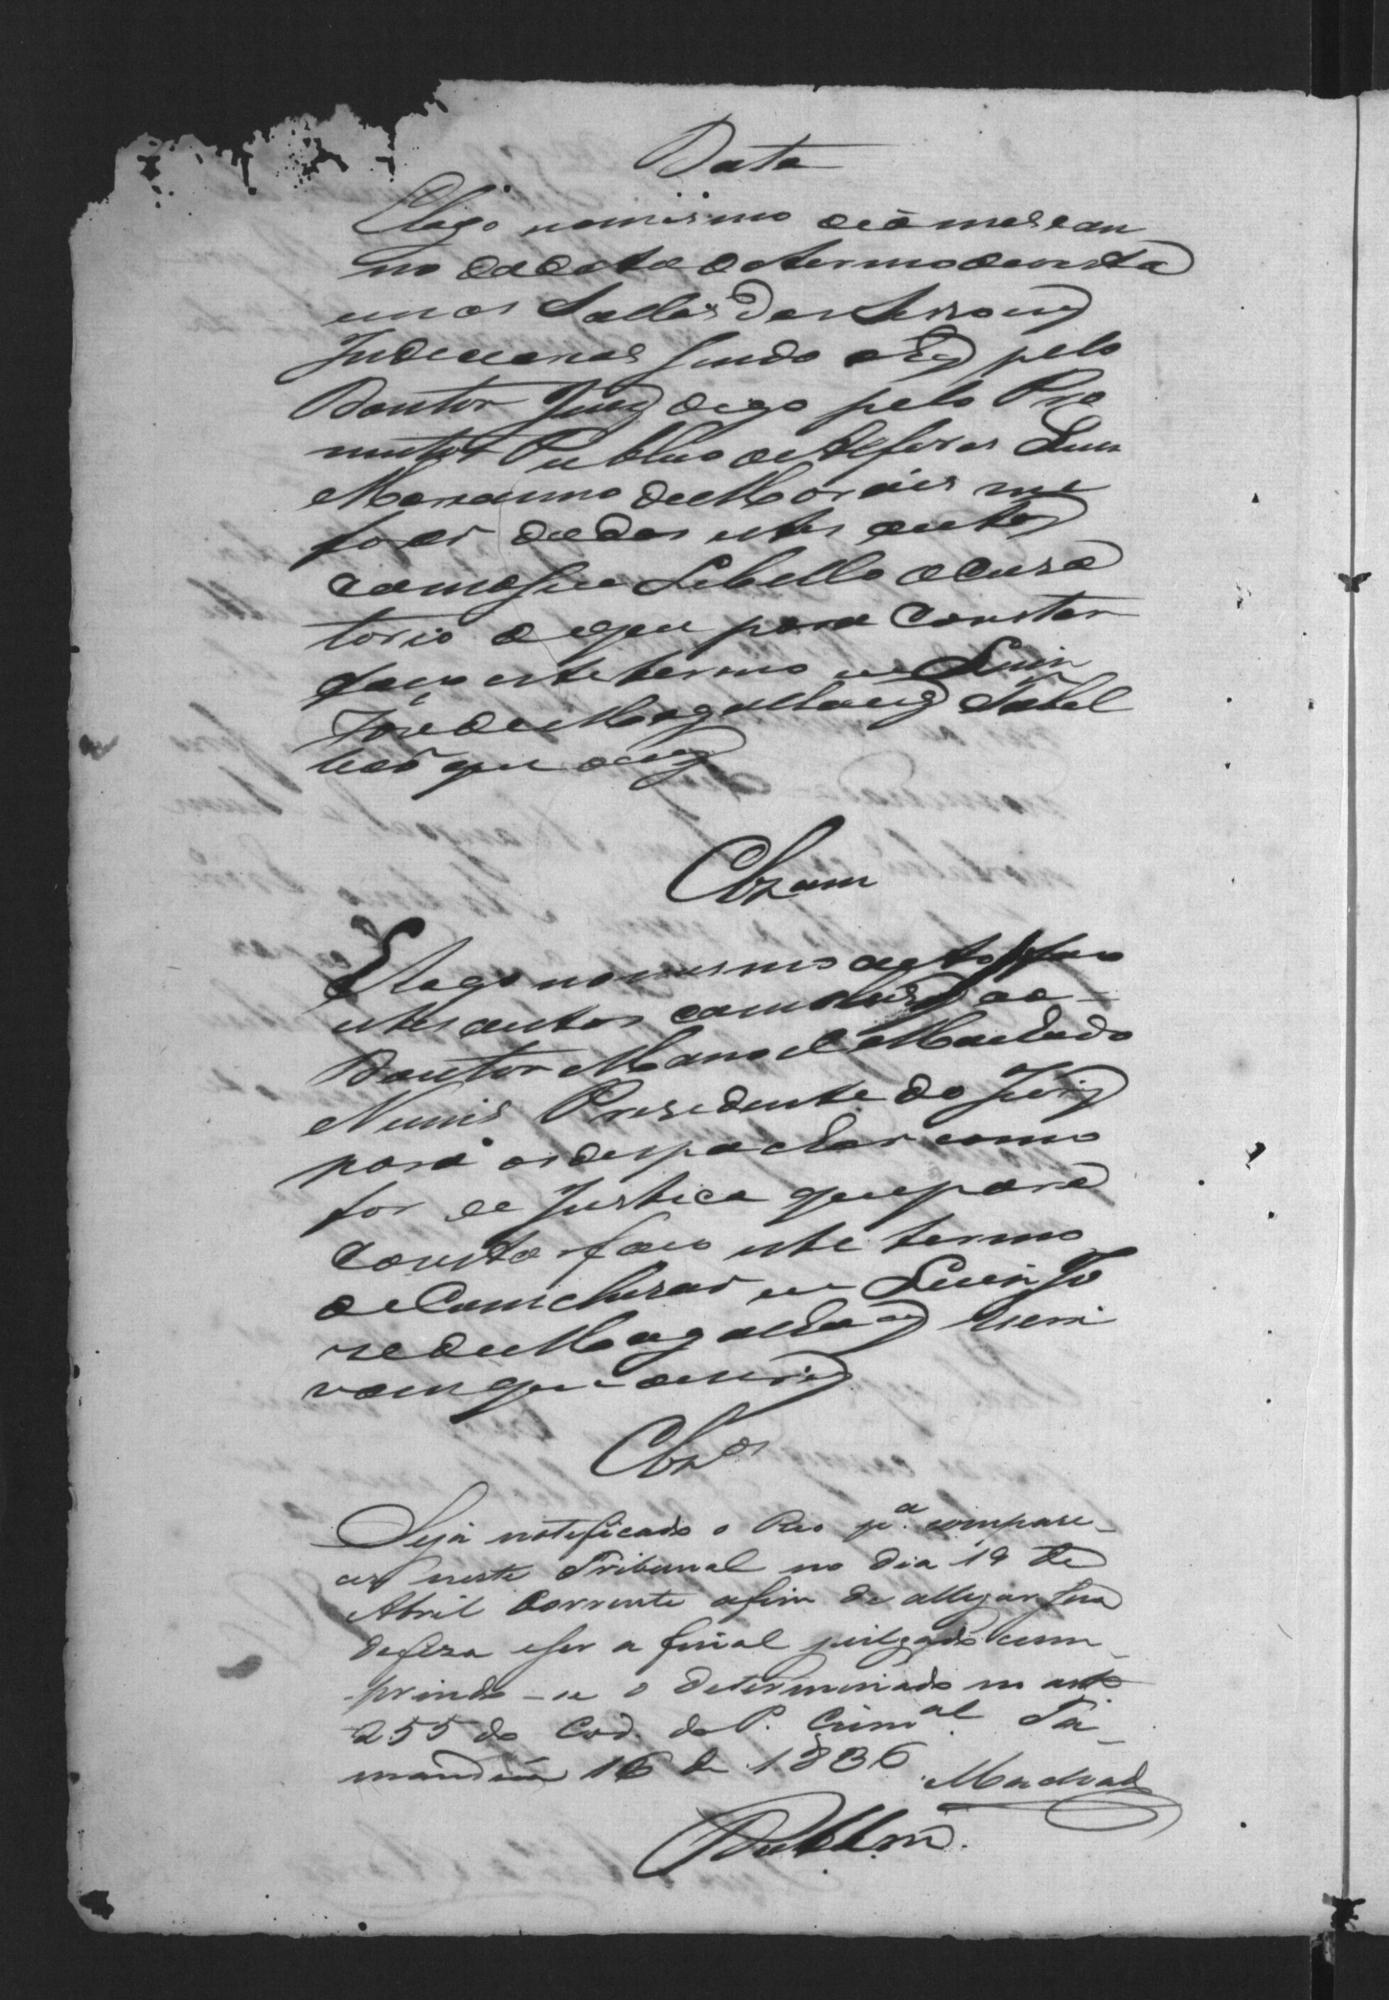 Data
E logo no mesmo dia mes e an
no da data do termo de vista
em as Sallas das Sessoens
Judeciarias sendo ahy pelo
Doutor Juiz digo pelo Pro
mutor Publico o Alferes Luis
Marianno de Moraes me
forão dados estes autos
com o seu Libello acusa
torio do que para constar
faço este termo eu Luis
Jose de Magalhaens Tabel
lião que o escrevy
Clzam
E logo no mesmo acto faço
estes autos concluzos ao
Doutor Manoel Machado
Nunis Presidente do Juiz
para os despachar como
for de Justica que para
constar faço este termo
de Comcluzão eu Luis Jo
se de Magalhaens Escri
vam que escrevi
Clzos
Seja notificado o Reo pa. compare-
cer neste Tribunal no dia 19 de
Abril Corrente afim de allegar sua
defeza e ser a final julgado cum-
prindo-se o determinado no art
255 do Cod. do P. Crimal Ta-
manduá 16 de 1836 Machado
Publm.